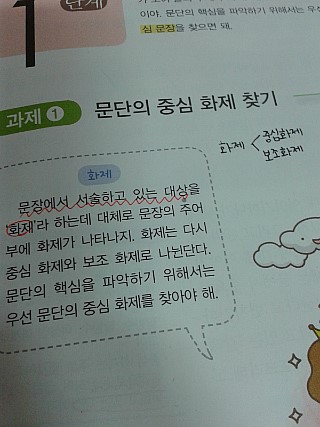 1 단계
이야. 문단의 핵심을 파악하기 위해서는 우선
심 문장을 찾으면 돼.
과제 1 문단의 중심 화제 찾기
화제 < 중심화제
보조화제
화제
문장에서 서술하고 있는 대상을
'화제'라 하는데 대체로 문장의 주어
부에 화제가 나타나지. 화제는 다시
중심 화제와 보조 화제로 나뉜단다.
문단의 핵심을 파악하기 위해서는
우선 문단의 중심 화제를 찾아야 해.